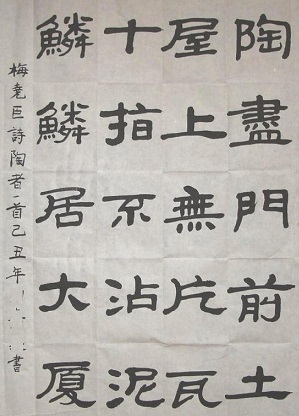 陶盡門前土
屋上無片瓦
十指不沾泥
鱗鱗居大厦
梅堯臣詩陶者一首己丑年書